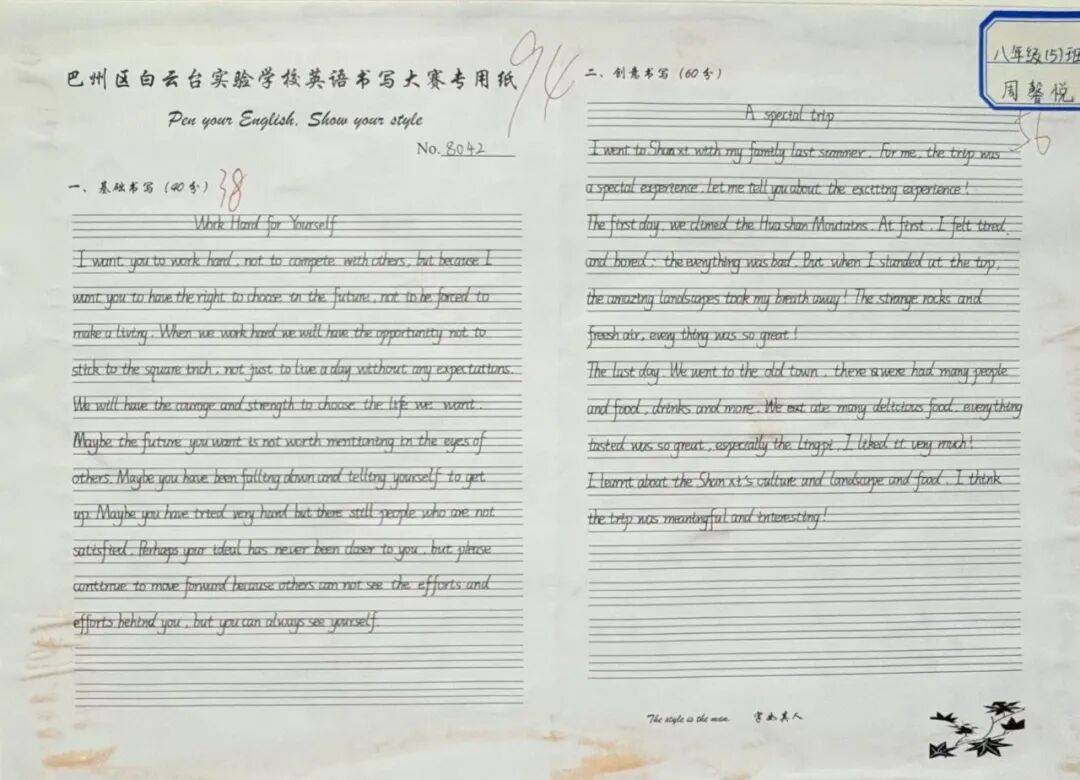 巴州区白云台实验学校英语书写大赛专用纸
Pen your English, Show your style
No. 8042
94
一、基础书写（40分）
38
Work Hard for Yourself
I want you to work hard, not to compete with others, but because I
want you to have the right to choose in the future, not to be forced to
make a living. When we work hard we will have the opportunity not to
stick to the square inch, not just to live a day without any expectations.
We will have the courage and strength to choose the life we want.
Maybe the future you want is not worth mentioning in the eyes of
others. Maybe you have been falling down and telling yourself to get
up. Maybe you have tried very hard but there still people who are not
satisfied. Perhaps your ideal has never been closer to you, but please
continue to move forward because others can not see the efforts and
efforts behind you, but you can always see yourself.
二、创意书写（60分）
八年级(5)班
周馨悦
56
A special trip
I went to Shan xi with my family last summer. For me, the trip was
a special experience. Let me tell you about the exciting experience!
The first day, we climed the Hua shan Moutains. At first, I felt tired
and bored: the everything was bad. But when I standed at the top,
the amazing landscapes took my breath away! The strange rocks and
freesh air, every thing was so great!
The last day. We went to the old town, there were had many people
and food, drinks and more. We ate many delicious food, everything
tasted was so great, especially the Liangpi, I liked it very much!
I learnt about the Shan xi's culture and landscape and food. I think
the trip was meaningful and interesting!
The style is the man. 字如其人